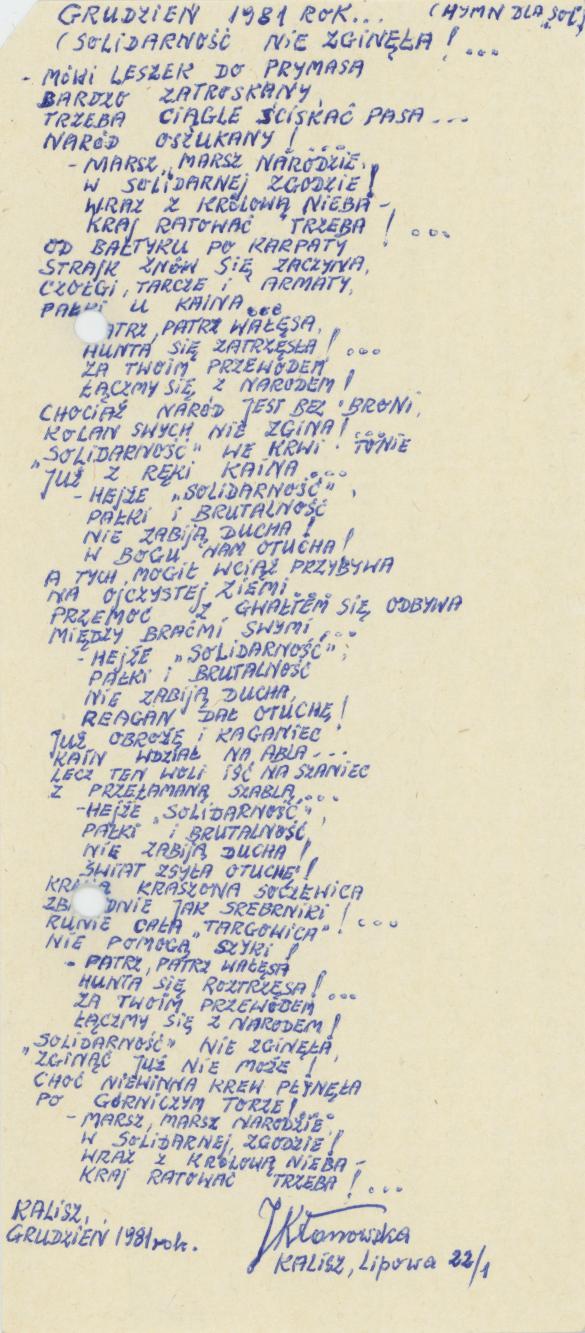 GRUDZIEŃ 1981 ROK... (HYMN DLA „SOL”)
(SOLIDARNOŚĆ NIE ZGINĘŁA!...
- MÓWI LESZEK DO PRYMASA
BARDZO ZATROSKANY,
TRZEBA CIĄGLE ŚCISKAĆ PASA...
NARÓD OSZUKANY!...
- MARSZ, MARSZ NARODZIE.
W SOLIDARNEJ ZGODZIE!
WRAZ Z KRÓLOWĄ NIEBA -
KRAJ RATOWAĆ TRZEBA!...
OD BAŁTYKU PO KARPATY
STRAJK ZNÓW SIĘ ZACZYNA,
CZOŁGI, TARCZE I ARMATY,
PAŁKI U KAINA...
ATRZ, PATRZ WAŁĘSA,
HUNTA SIĘ ZATRZĘSŁA!...
ZA TWOIM PRZEWODEM
ŁĄCZMY SIĘ Z NARODEM!
CHOCIAŻ NARÓD JEST BEZ BRONI,
KOLAN SWYCH NIE ZGINA!...
„SOLIDARNOŚĆ” WE KRWI TONIE
JUŻ Z RĘKI KAINA...
- HEJŻE „SOLIDARNOŚĆ”,
PAŁKI I BRUTALNOŚĆ
NIE ZABIJĄ DUCHA!
W BOGU NAM OTUCHA!
A TYCH MOGIŁ WCIĄŻ PRZYBYWA
NA OJCZYSTEJ ZIEMI...
PRZEMOC Z GWAŁTEM SIĘ ODBYWA
MIĘDZY BRAĆMI SWYMI...
- HEJŻE „SOLIDARNOŚĆ”,
PAŁKI I BRUTALNOŚĆ
NIE ZABIJĄ DUCHA,
REAGAN DAŁ OTUCHĘ!
JUŻ OBROŻĘ I KAGANIEC
KAIN WDZIAŁ NA ABLA...
LECZ TEN WOLI IŚĆ NA SZANIEC
Z PRZEŁAMANĄ SZABLĄ...
- HEJŻE „SOLIDARNOŚĆ”,
PAŁKI I BRUTALNOŚĆ
NIE ZABIJĄ DUCHA!
ŚWIAT ZSYŁA OTUCHĘ!
KRASZONA SOCZEWICA
ZB DNIE JAK SREBRNIKI!...
RUNIE CAŁA „TARGOWICA”
NIE POMOGĄ SZYKI!
- PATRZ, PATRZ WAŁĘSA
HUNTA SIĘ ROZTRZĘSA!...
ZA TWOIM PRZEWODEM
ŁĄCZMY SIĘ Z NARODEM!
„SOLIDARNOŚĆ” NIE ZGINĘŁA,
ZGINĄĆ JUŻ NIE MOŻE!
CHOĆ NIEWINNA KREW PŁYNĘŁA
PO GÓRNICZYM TORZE!
- MARSZ, MARSZ NARODZIE
W SOLIDARNEJ ZGODZIE!
WRAZ Z KRÓLOWĄ NIEBA -
KRAJ RATOWAĆ TRZEBA!...
KALISZ,
GRUDZIEŃ 1981 rok.
JKłanowska
KALISZ, Lipowa 22/1